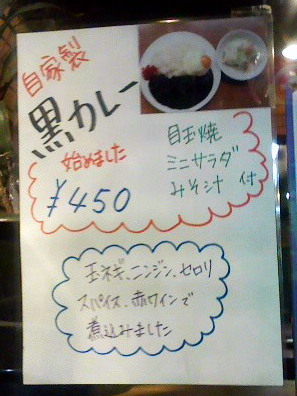 自家製
黒カレー
始めました
¥450
目玉焼
ミニサラダ
みそ汁 付
玉ネギ、ニンジン、セロリ
スパイス、赤ワインで
煮込みました